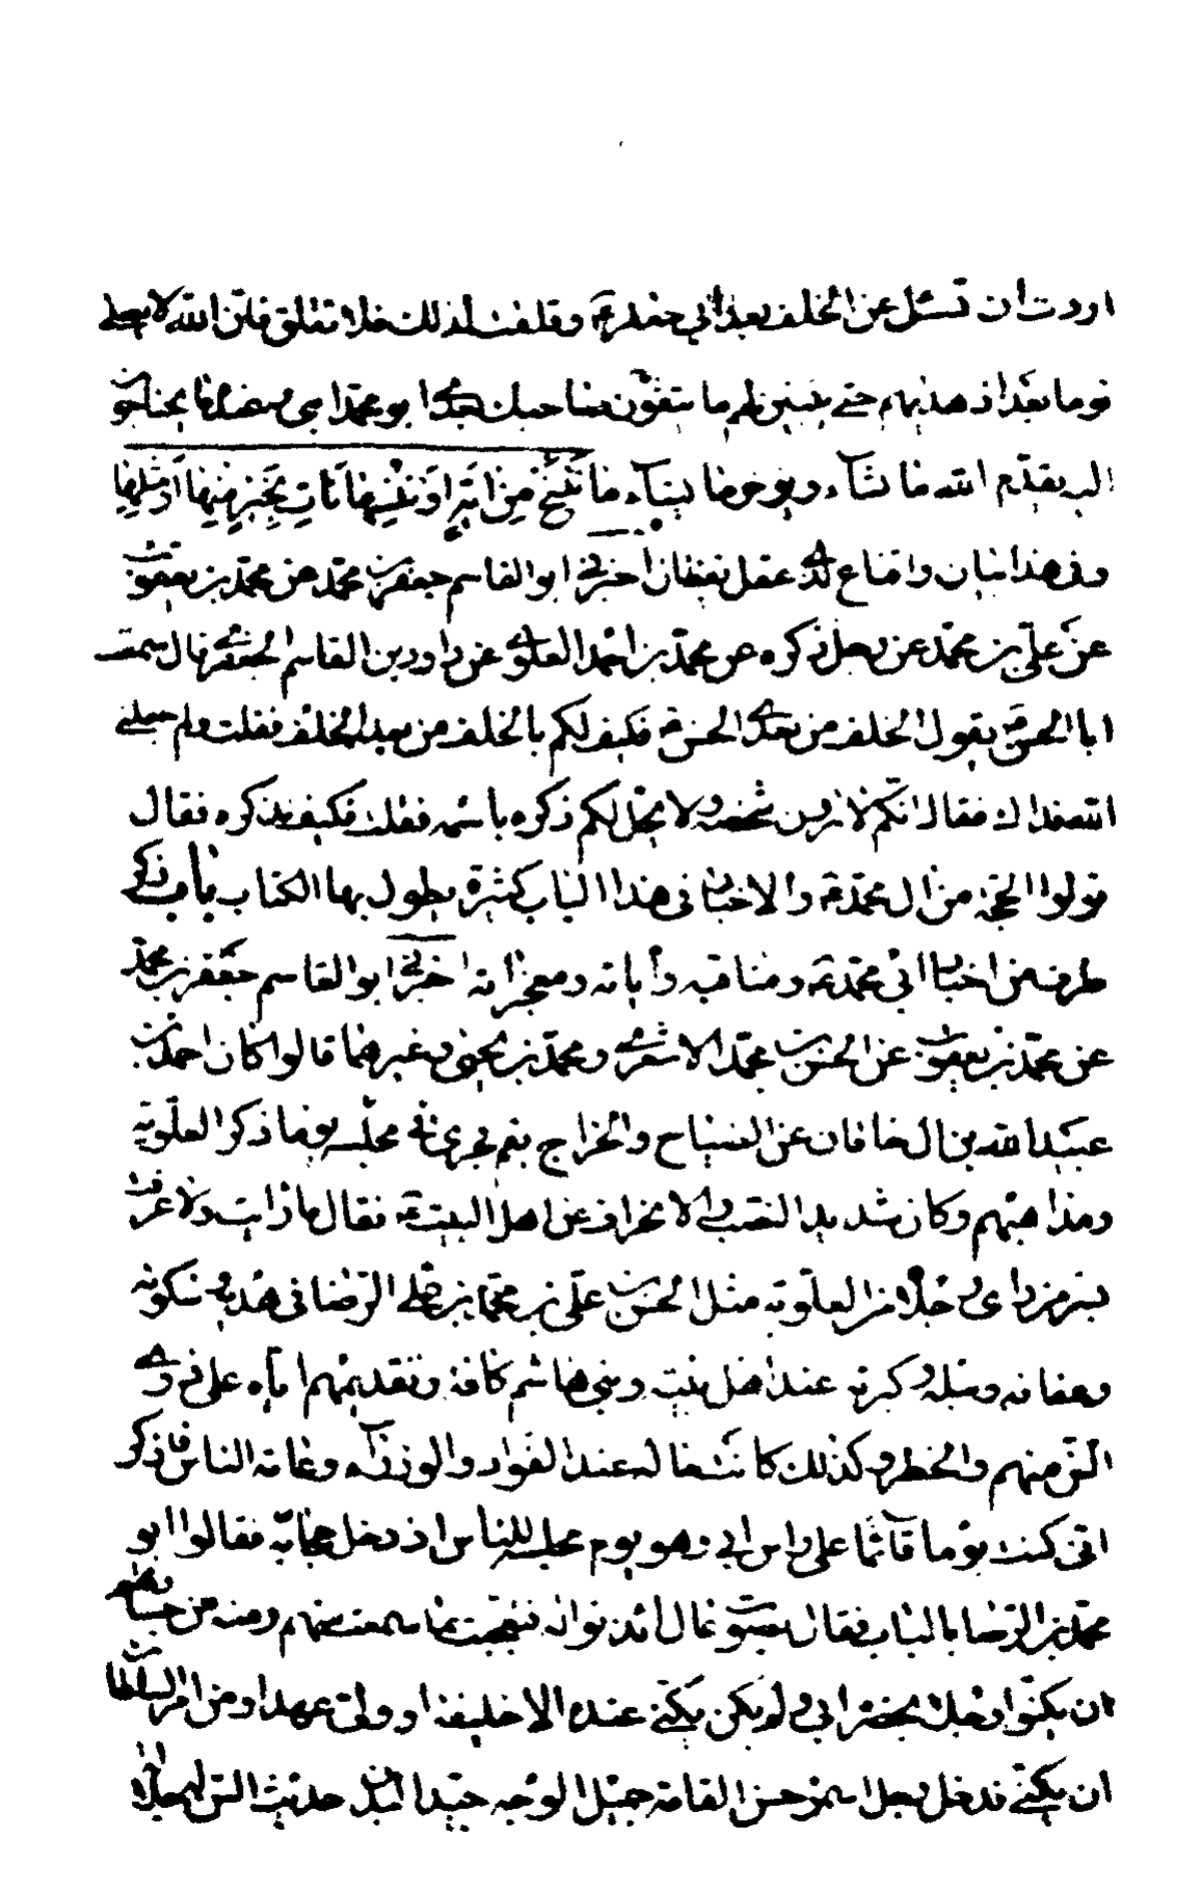 اردت أن تسئل عن الخلف بعد أبي جعفر ع و قلقت لذلك فلا تقلق فانّ الله لا يضلّ
قوما بعد اذ هديهم حتى يبيّن لهم ما يتّقون صاحبك بعدى ابو محمّد ابنى و عنده ما يحتاجون
اليه يقدّم الله ما يشآء و يؤخر ما يشآء ما نَنْسَخْ مِنْ ايَةٍ اَوْ نُنْسِها نَاتِ بِخَيْرٍ مِنْها اَوْ مِثْلِها
و فى هذا بيان و اقناع لذى عقل يقظان اخبرنى ابو القاسم جعفر بن محمّد عن محمّد بن يعقوب
عن علىّ بن محمّد عن رجل ذكره عن محمّد بن احمد العلوى عن داود بن القاسم الجعفرى قال سمعت
ابا الحسن ع يقول الخلف من بعدى الحسن ع فكيف لكم بالخلف من بعد الخلف فقلت و لم جعلنى
الله فداك فقال انّكم لا ترون شخصه و لا يحلّ لكم ذكره باسمه فقلت فكيف نذكره فقال
قولوا الحجّة من ال محمّد ع و الاخبار فى هذا الباب كثيرة يطول بها الكتاب باب ذكر
طرف من اخبار ابى محمّد ع و مناقبه و اياته و معجزاته اخبرنى ابو القاسم جعفر بن محمّد
عن محمّد بن يعقوب عن الحسن بن محمّد الاشعرى و محمّد بن يحيى و غيرهما قالوا كان احمد بن
عبيد الله بن خاقان على الضياع و الخراج بقم فجرى فى مجلسه يوما ذكر العلويّة
و مذاهبهم و كان شديد النصب و الانحراف عن اهل البيت ع فقال ما رايت و لا عرفت
بسرّ من راى رجلا من العلويّة مثل الحسن بن علىّ بن محمّد بن على الرّضا فى هديه و سكونه
و عفافه و نبله و كبرته عند اهل بيته و بنى هاشم كافة و تقديمهم اياه على ذوى
السّنّ منهم و الخطر و كذلك كانت حاله عند القوّاد و الوزرآء و عامّة الناس فاذكر
انّى كنت يوما قآئما على راس ابى و هو يوم مجلسه للناس اذ دخل حجّابه فقالوا ابو
محمّد بن الرّضا بالباب فقال بصوت عال ائذنوا له فتعجّبت ممّا سمعت منهم و منه من جسارتهم
ان يكنّوا رجلا بحضرة ابى و لم يكن يكنّى عنده الا خليفة او ولىّ عهد او من امر السلطان
ان يكنّى فدخل رجل اسمر حسن القامة جميل الوجه جيّد البدن حديث السّنّ له جلالة